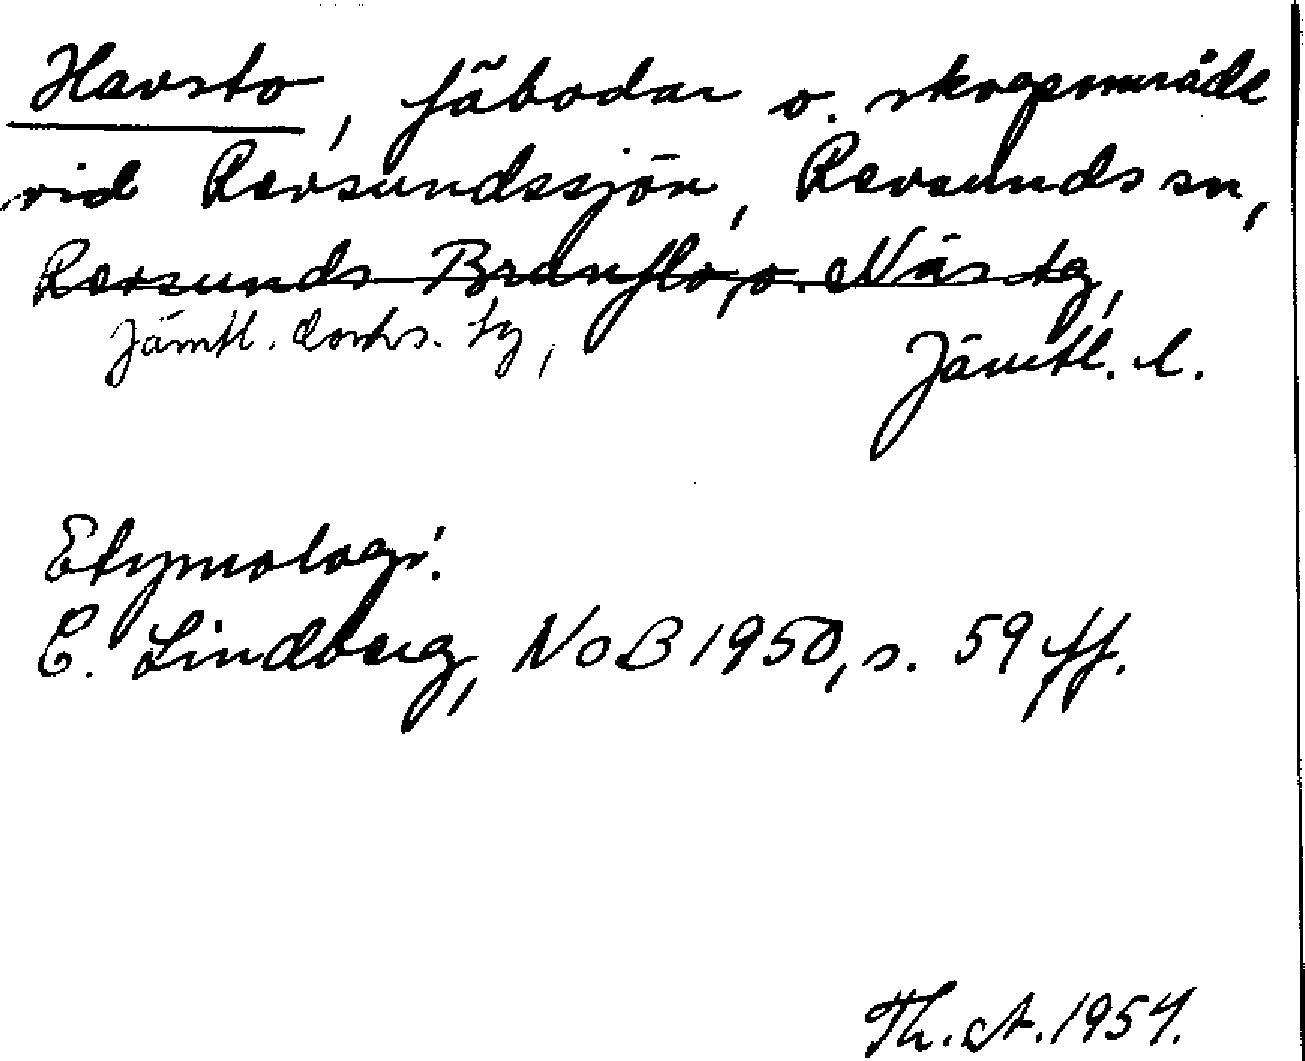 Havsto, fäbodar o. skogsområde
vid Revsundssjön, Revsunds sn,
Revsunds Brunflo, o. Näs tg,
Jämtl. domks. tg,
Jämtl. l.
Etymologi:
C. Lindberg, NoB 1950, s. 59 ff.
Th. A. 1954.